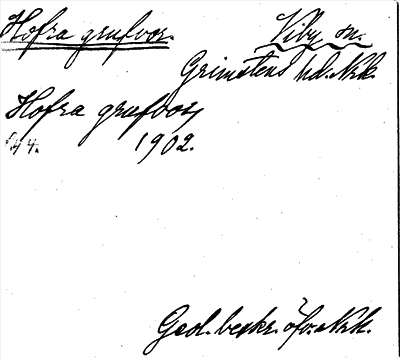 Hofra grufvor. Viby sn.
Grimstens hd. Nrk.
Hofra grufvor,
1902.
Geol. beskr. öfv. Nrk.